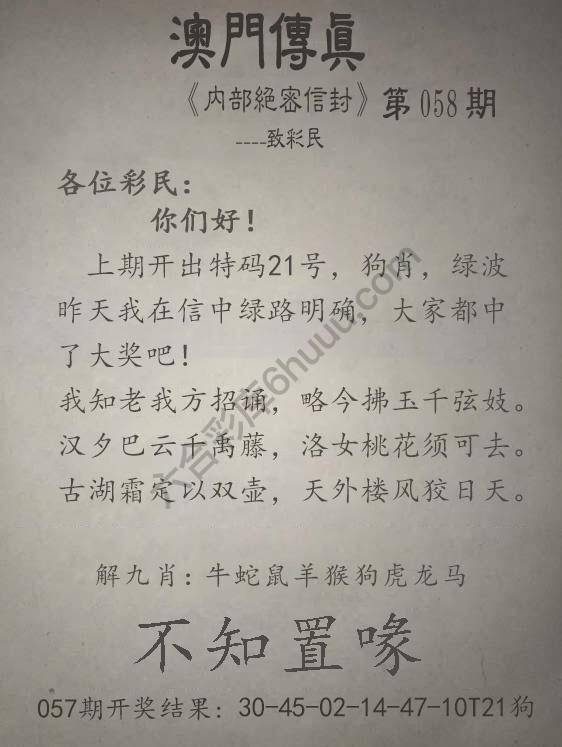 澳門傳眞
《内部絕密信封》第058期
----致彩民
各位彩民：
你们好！
上期开出特码21号，狗肖，绿波
昨天我在信中绿路明确，大家都中
了大奖吧！
我知老我方招诵，略今拂玉千弦妓。
汉夕巴云千禹藤，洛女桃花须可去。
古湖霜定以双壶，天外楼风狡日天。
解九肖：牛蛇鼠羊猴狗虎龙马
不知置喙
057期开奖结果：30-45-02-14-47-10T21狗
六合彩库6huuu.com